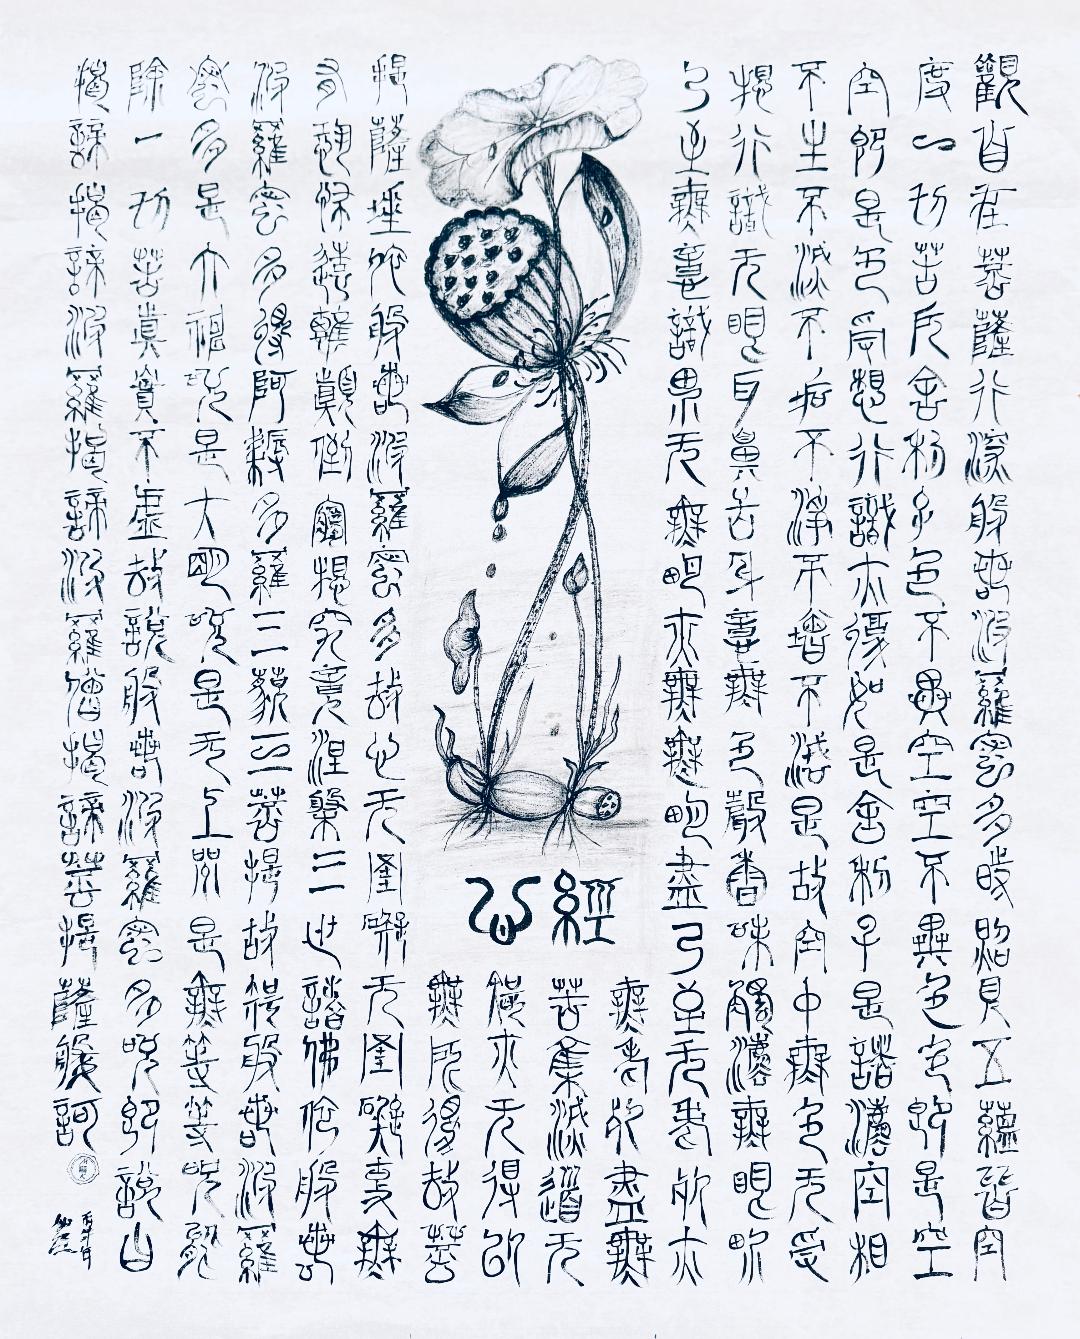 觀自在菩薩行深般若波羅蜜多時照見五蘊皆空
度一切苦厄舍利子色不異空空不異色色即是空
空即是色受想行識亦復如是舍利子是諸法空相
不生不滅不垢不淨不增不減是故空中無色无受
想行識无眼耳鼻舌身意無色聲香味觸法無眼界
乃至無意識界无無明亦無無明盡乃至无老死亦
無老死盡無
苦集滅道无
智亦无得以
無所得故菩
心經
提薩埵依般若波羅蜜多故心无罣礙无罣礙故無
有恐怖遠離顛倒夢想究竟涅槃三世諸佛依般若
波羅蜜多得阿耨多羅三藐三菩提故知般若波羅
蜜多是大神咒是大明咒是无上咒是無等等咒能
除一切苦真實不虛故說般若波羅蜜多咒即說曰
揭諦揭諦波羅揭諦波羅僧揭諦菩提薩婆訶